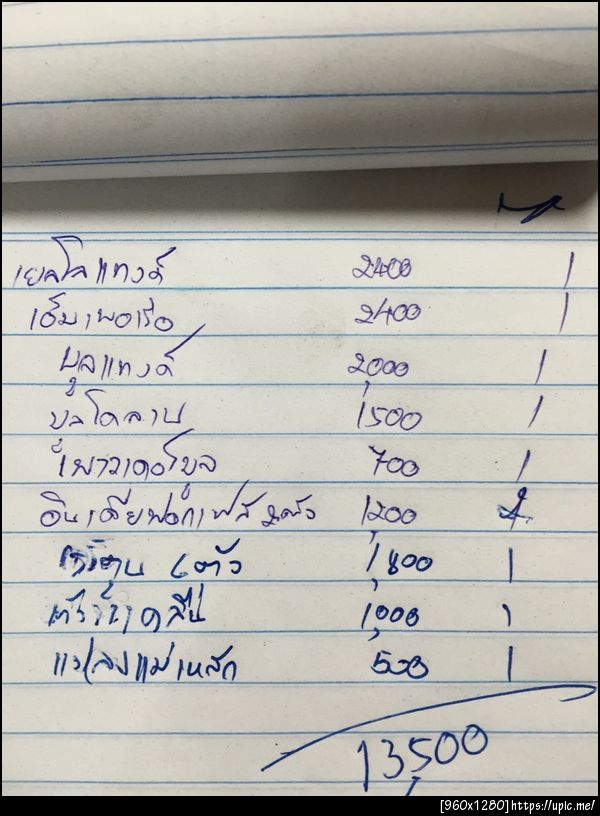 เยลโลแทงค์ 2400 1
เอ็มเพอเร่อ 2400 1
บูลแทงค์ 2,000 1
บูลโคลาน 1500 1
เพาวเดอร์บูล 700 1
อินเดียฟอกเฟส 2ตัว 1,200
6ตัว 1,800 1
1,000 1
แม่เหล็ก 500 1
13,500
[960x1280]https://upic.me/